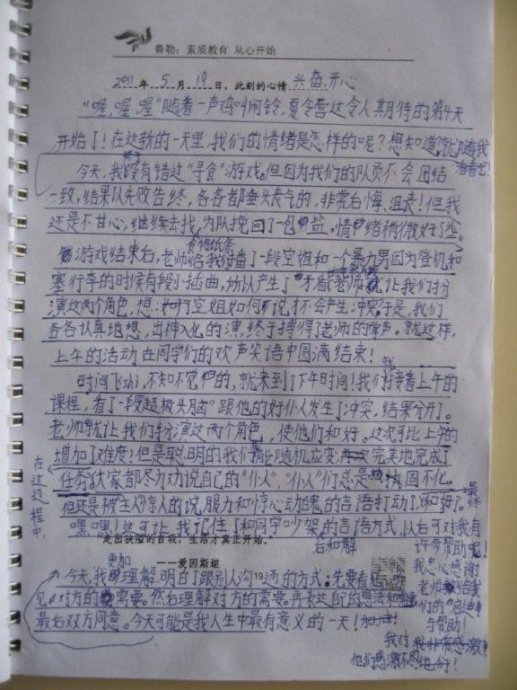 鲁勒：素质教育 从心开始
2011年5月19日，此刻的心情 兴奋、开心
"喔，喔，喔"随着一声鸡叫闹铃，夏令营这令人期待的第4天
开始了！在这新的一天里，我们的情绪是怎样的呢？想知道，就随我
看看吧！
今天，我没有错过"寻食"游戏。但因为我们的队员不会团结
一致，结果以失败告终，各各都垂头丧气的，非常后悔、沮丧！但我
还是不甘心，继续去找，为队挽回了一包盐，情绪稍微好了些。
游戏结束后，老师给我们播了一段空姐和一个暴力男因为登机和
塞行李的时候有段小插曲，所以产生了矛盾。老师就让我们扮
演这两个角色，想：如何空姐如何说才不会产生冲突。于是，我们
各各认真地想，出神入化的演，终于搏得了老师的掌声。就这样，
上午的活动在同学们的欢声笑语中圆满结束！
时间飞ishi，不知不觉中的，就来到了下午时间！我们接着上午的
课程，看了一段超极头脑跟他的好仆人发生了冲突，结果分开了。
老师就让我们扮演这两个角色，使他们和好。这次可比上午的
增加了难度！但是聪明的我们能随机应变，完美地完成了
任务。大家都尽力劝说自己的"仆人"，"仆人"们总是顽固不化。
在这过程中，
但还是被主人惊人的说服力和惊心动魄的言语打动了，和好了。
最终
嘿嘿！这可让我记住了和同学吵架的言语方式，以后可对我有
后和解
许多帮助呢！
走出狭隘的自我，生活才真正开始。
——爱因斯坦
更加
今天，我理解、明白了跟别人沟通的方式：先要看
19
见对方的需要。然后理解对方的需要。再表达自己的想法和
最后双方同意。今天可能是我人生中最有意义的一天！加油！
我衷心感谢
老师给我
们的
与帮助！
我对
我非常感激！
他们感激不尽